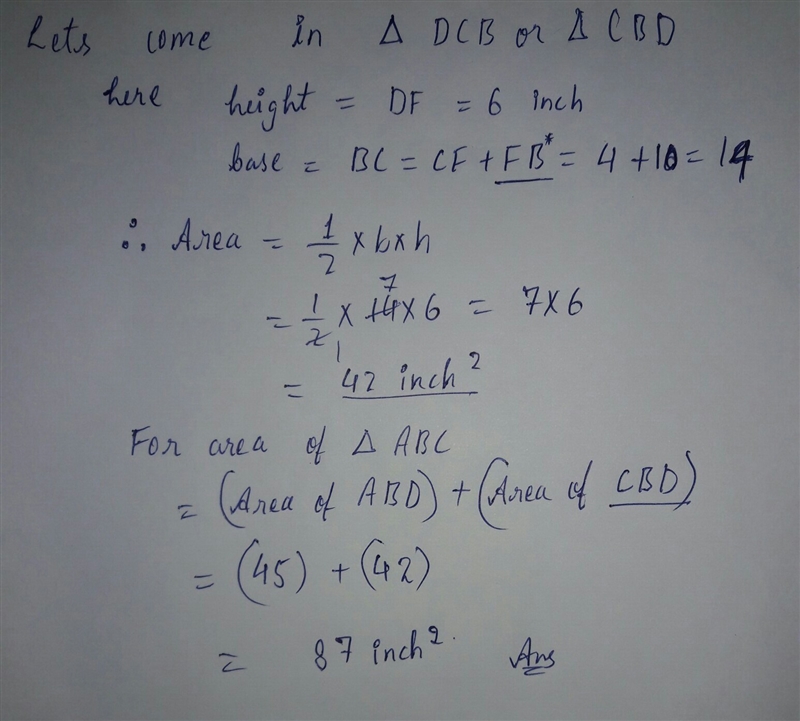 Lets come in Δ DCB or Δ CBD
here height = DF = 6 inch
base = BC = CF + FB* = 4 + 10 = 14
∴ Area = 1/2 × b × h
= 1/2 × 14 × 6 = 7 × 6
7
1
= 42 inch²
For area of Δ ABC
= (Area of ABD) + (Area of CBD)
= (45) + (42)
= 87 inch². Ans